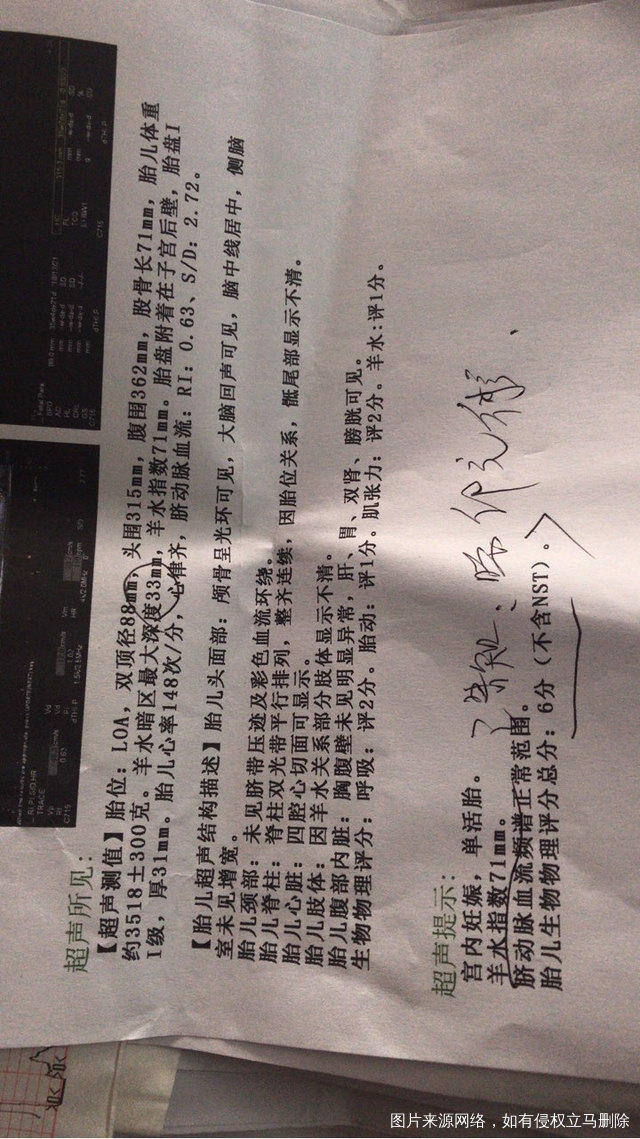 超声所见：
【超声测值】胎位：LOA，双顶径88mm，头围315mm，腹围362mm，股骨长71mm，胎儿体重
约3518±300克。羊水暗区最大深度33mm，羊水指数71mm。胎盘附着在子宫后壁，胎盘I
I级，厚31mm。胎儿心率148次/分，心律齐，脐动脉血流：RI：0.63、S/D：2.72。
【胎儿超声结构描述】胎儿头面部：颅骨呈光环可见，大脑回声可见，脑中线居中，侧脑
室未见增宽。
胎儿颈部：未见脐带压迹及彩色血流环绕。
胎儿脊柱：脊柱双光带平行排列，整齐连续，因胎位关系，骶尾部显示不清。
胎儿心脏：四腔心切面可显示。
胎儿肢体：因羊水关系部分肢体显示不清。
胎儿腹部内脏：胸腹壁未见明显异常，肝、胃、双肾、膀胱可见。
生物物理评分：呼吸：评2分。胎动：评1分。肌张力：评2分。羊水:评1分。
超声提示：
宫内妊娠，单活胎。
羊水指数71mm。
脐动脉血流频谱正常范围。
胎儿生物物理评分总分：6分（不含NST）。
图片来源网络，如有侵权立马删除